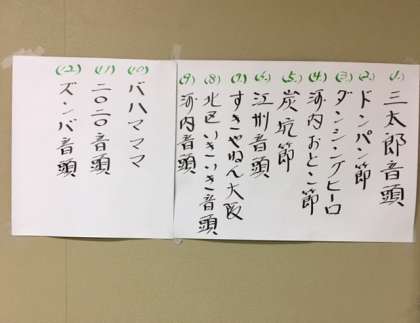 (1.) 三太郎音頭
(2.) ドンパン節
(3.) ダンシングヒーロ
(4.) 河内おとこ節
(5.) 炭坑節
(6.) 江州音頭
(7.) すきやねん大阪
(8.) 北区いきいき音頭
(9.) 河内音頭
(10.) バハマママ
(11.) 二〇二〇音頭
(12.) ズンバ音頭